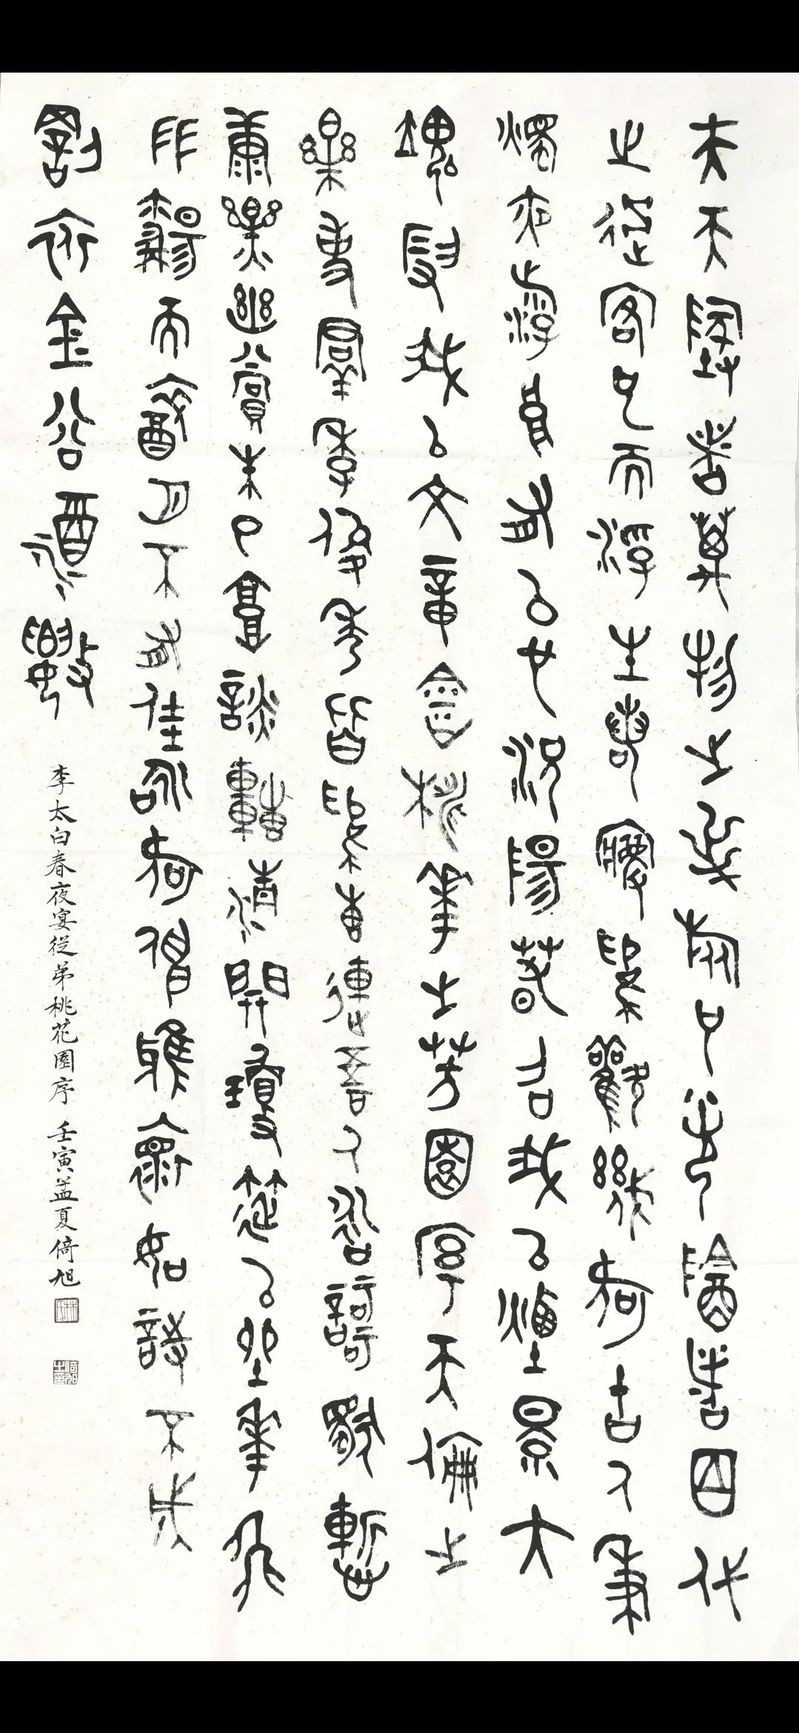 夫天地者萬物之逆旅也光陰者百代
之過客也而浮生若夢為歡幾何古人秉
燭夜遊良有以也況陽春召我以煙景大
塊假我以文章會桃華之芳園序天倫之
樂事群季俊秀皆為惠連吾人詠歌獨慚
康樂幽賞未已高談轉清開瓊筵以坐華飛
羽觴而醉月不有佳詠何伸雅懷如詩不成
罰依金谷酒數
李太白春夜宴從弟桃花園序 壬寅孟夏倚旭